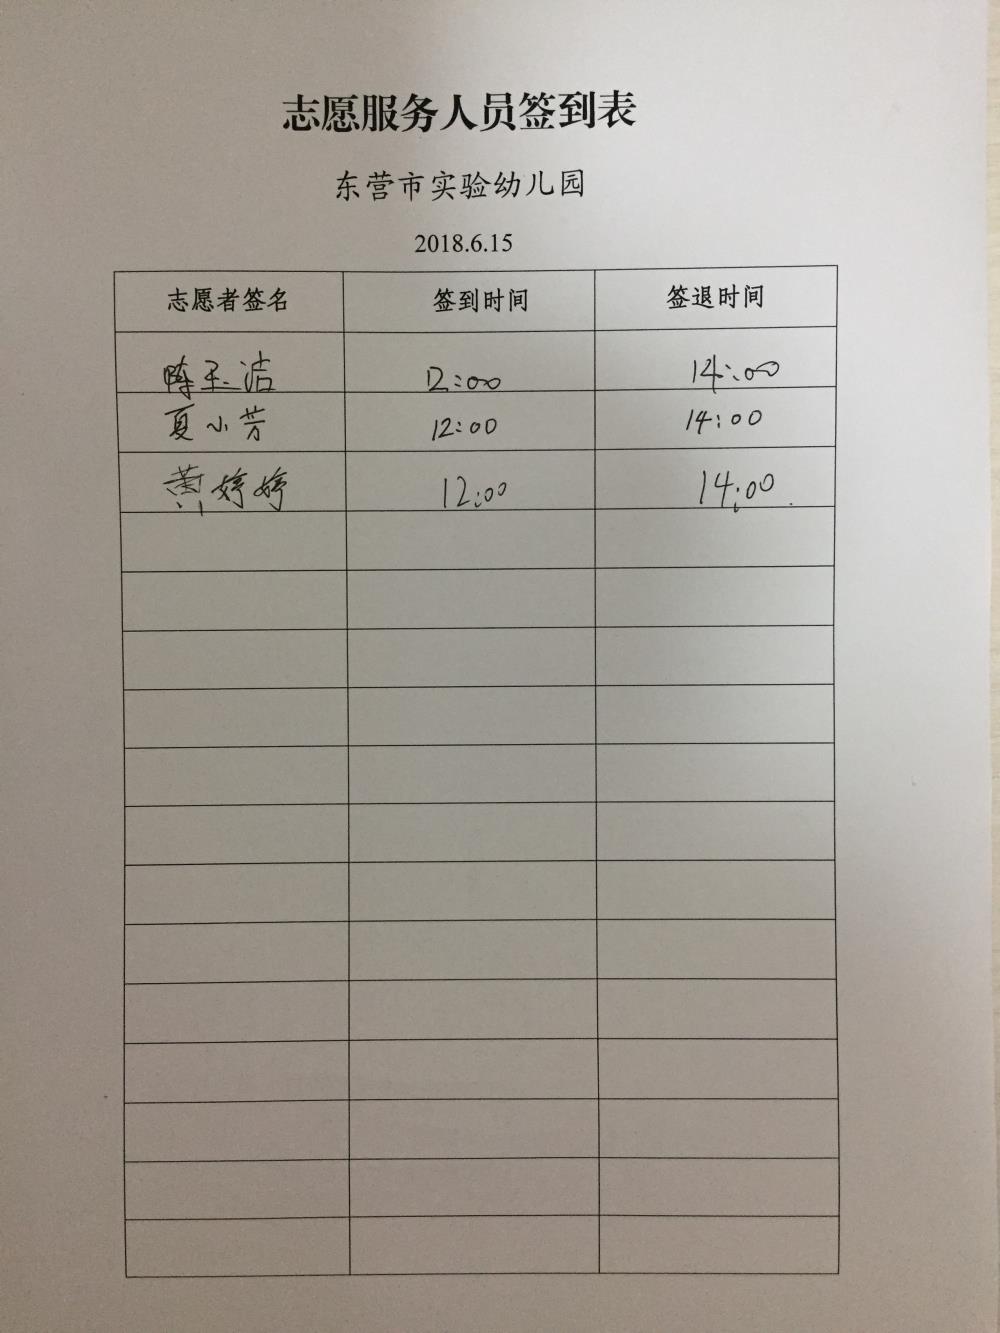 志愿服务人员签到表
东营市实验幼儿园
2018.6.15
志愿者签名 签到时间 签退时间
陈玉洁 12:00 14:00
夏小芳 12:00 14:00
黄婷婷 12:00 14:00